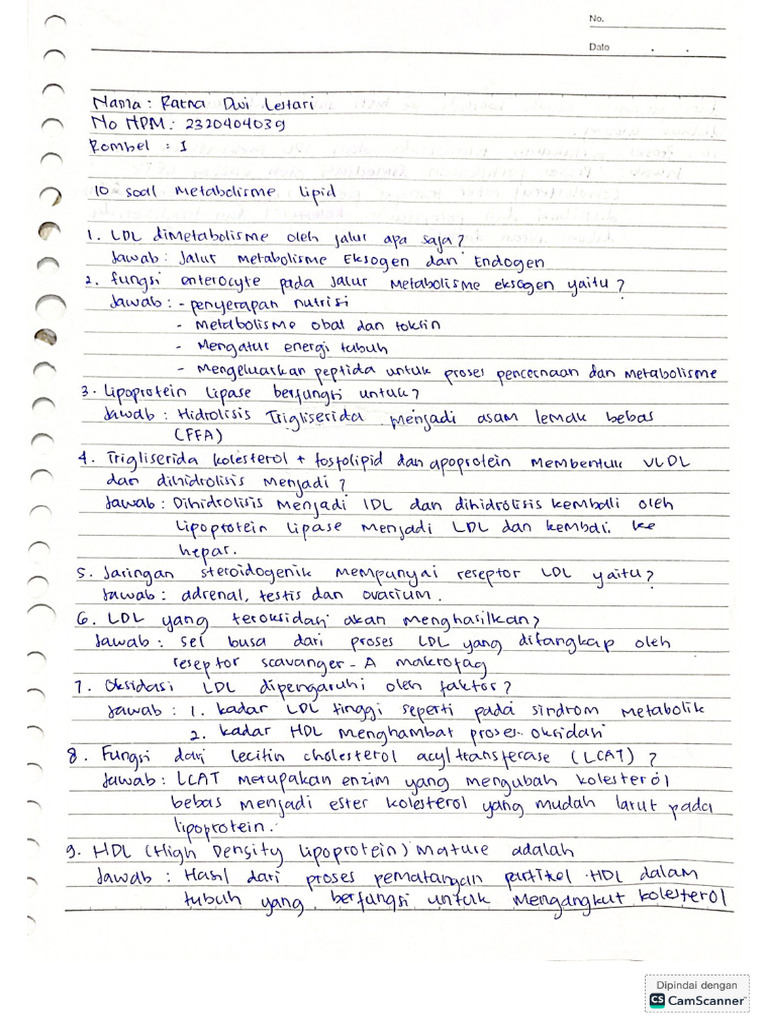 No.
Date . .
Nama : Ratna Dwi Lestari
No HPM : 2320404039
Rombel : 1
10 soal Metabolisme lipid
1. LDL dimetabolisme oleh jalur apa saja?
Jawab : Jalur Metabolisme Eksogen dan Endogen
2. fungsi enterocyte pada Jalur Metabolisme eksogen yaitu?
Jawab : - penyerapan nutrisi
- Metabolisme obat dan toksin
- Mengatur energi tubuh
- Mengeluarkan peptida untuk proses pencernaan dan Metabolisme
3. Lipoprotein lipase berfungsi untuk?
Jawab : Hidrolisis Trigliserida menjadi asam lemak bebas
(FFA)
4. Trigliserida kolesterol + fosfolipid dan apoprotein Membentuk VLDL
dan dihidrolisis Menjadi?
Jawab : Dihidrolisis Menjadi IDL dan dihidrolisis kembali oleh
Lipoprotein lipase Menjadi LDL dan kembali ke
hepar.
5. Jaringan steroidogenik mempunyai reseptor LDL yaitu?
Jawab : adrenal, testis dan ovarium.
6. LDL yang teroksidasi akan menghasilkan?
Jawab : sel busa dari proses LDL yang ditangkap oleh
reseptor scavanger - A makrofag
7. Oksidasi LDL dipengaruhi oleh faktor?
Jawab : 1. kadar LDL tinggi seperti pada sindrom metabolik
2. kadar HDL menghambat proses oksidasi
8. Fungsi dari lecitin cholesterol acyltransferase (LCAT) ?
Jawab : LCAT merupakan enzim yang mengubah kolesterol
bebas menjadi ester kolesterol yang mudah larut pada
lipoprotein.
9. HDL (High Density Lipoprotein) Mature adalah
Jawab : Hasil dari proses pematangan partikel HDL dalam
tubuh yang berfungsi untuk mengangkut kolesterol
Dipindai dengan
CS CamScanner